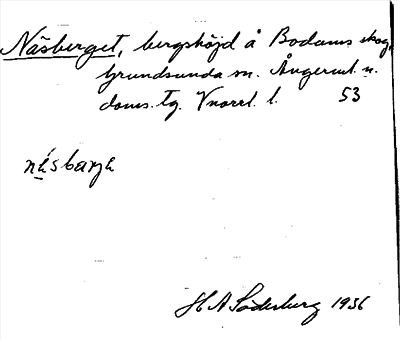 Näsberget, bergshöjd å Bodums skog,
Grundsunda sn. Ångerml. n.
doms. tg. Vnorrl. l. 53
näsbarjə
H A Söderberg 1936